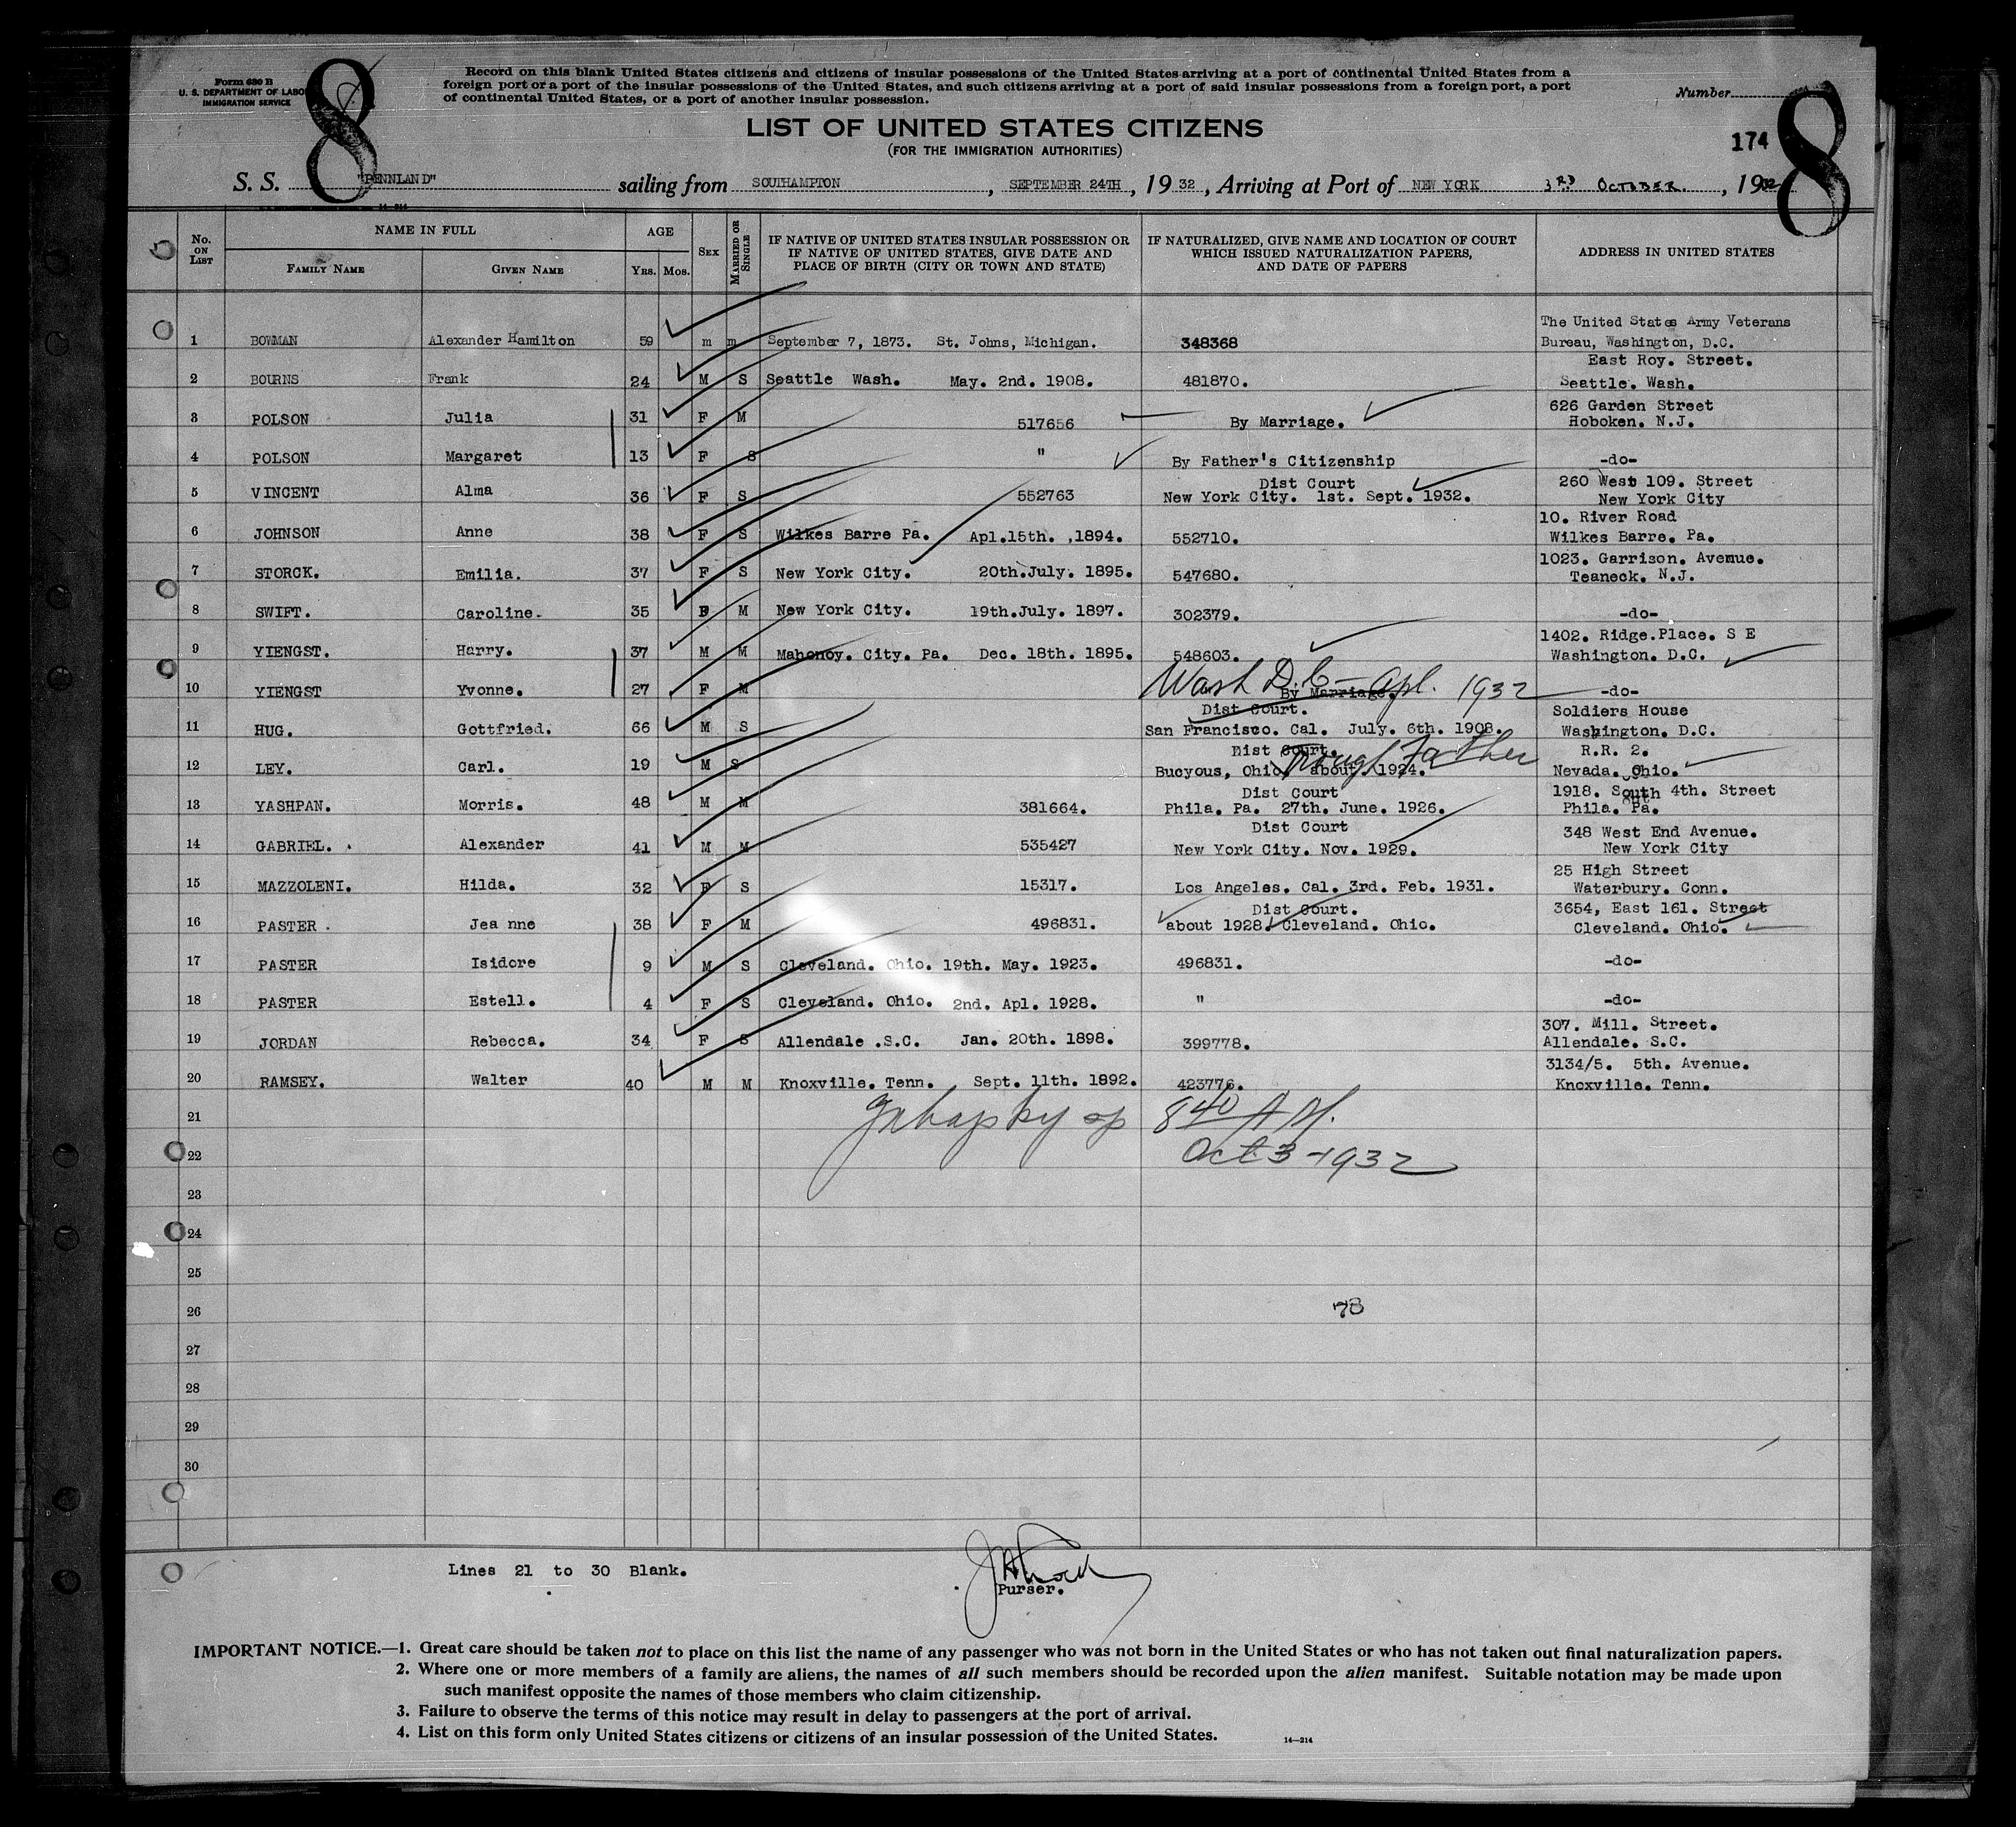 Form 630 B
U. S. DEPARTMENT OF LABOR
IMMIGRATION SERVICE
8
Record on this blank United States citizens and citizens of insular possessions of the United States arriving at a port of continental United States from a
foreign port or a port of the insular possessions of the United States, and such citizens arriving at a port of said insular possessions from a foreign port, a port
of continental United States, or a port of another insular possession.
Number
8
LIST OF UNITED STATES CITIZENS
(FOR THE IMMIGRATION AUTHORITIES)
174
S. S. "PENNLAND" sailing from SOUTHAMPTON, SEPTEMBER 24TH, 1932, Arriving at Port of NEW YORK 3RD OCTOBER., 1932
14-214
No. ON LIST
NAME IN FULL
FAMILY NAME GIVEN NAME
AGE
YRS. MOS.
SEX
MARRIED OR SINGLE
IF NATIVE OF UNITED STATES INSULAR POSSESSION OR
IF NATIVE OF UNITED STATES, GIVE DATE AND
PLACE OF BIRTH (CITY OR TOWN AND STATE)
IF NATURALIZED, GIVE NAME AND LOCATION OF COURT
WHICH ISSUED NATURALIZATION PAPERS,
AND DATE OF PAPERS
ADDRESS IN UNITED STATES
The United States Army Veterans
1 BOWMAN Alexander Hamilton 59 m m September 7, 1873. St. Johns, Michigan. 348368 Bureau, Washington, D.C.
East Roy. Street.
2 BOURNS Frank 24 M S Seattle Wash. May. 2nd. 1908. 481870. Seattle. Wash.
626 Garden Street
3 POLSON Julia 31 F M 517656 By Marriage. Hoboken. N.J.
4 POLSON Margaret 13 F S " By Father's Citizenship -do-
Dist Court 260 West 109. Street
5 VINCENT Alma 36 F S 552763 New York City. 1st. Sept. 1932. New York City
10. River Road
6 JOHNSON Anne 38 F S Wilkes Barre Pa. Apl.15th. ,1894. 552710. Wilkes Barre. Pa.
1023. Garrison. Avenue.
7 STORCK. Emilia. 37 F S New York City. 20th.July. 1895. 547680. Teaneck. N.J.
8 SWIFT. Caroline. 35 F M New York City. 19th.July. 1897. 302379. -do-
1402. Ridge.Place. S E
9 YIENGST. Harry. 37 M M Mahonoy. City. Pa. Dec. 18th. 1895. 548603. Washington. D.C.
Wash D.C - Apl. 1932
10 YIENGST Yvonne. 27 F M By Marriage. -do-
Dist Court. Soldiers House
11 HUG. Gottfried. 66 M S San Francisco. Cal. July. 6th. 1908. Washington. D.C.
Dist Court. Through Father R.R. 2.
12 LEY. Carl. 19 M S Bucyous, Ohio about 1924. Nevada. Ohio.
Dist Court 1918. South 4th. Street
13 YASHPAN. Morris. 48 M M 381664. Phila. Pa. 27th. June. 1926. Phila. Pa.
Dist Court 348 West End Avenue.
14 GABRIEL. Alexander 41 M M 535427 New York City. Nov. 1929. New York City
25 High Street
15 MAZZOLENI. Hilda. 32 F S 15317. Los Angeles. Cal. 3rd. Feb. 1931. Waterbury. Conn.
Dist Court. 3654, East 161. Street
16 PASTER . Jeanne 38 F M 496831. about 1928. Cleveland. Ohio. Cleveland. Ohio.
17 PASTER Isidore 9 M S Cleveland. Ohio. 19th. May. 1923. 496831. -do-
18 PASTER Estell. 4 F S Cleveland. Ohio. 2nd. Apl. 1928. " -do-
307. Mill. Street.
19 JORDAN Rebecca. 34 F S Allendale .S.C. Jan. 20th. 1898. 399778. Allendale. S.C.
3134/5. 5th. Avenue.
20 RAMSEY. Walter 40 M M Knoxville. Tenn. Sept. 11th. 1892. 423776. Knoxville. Tenn.
21 8 40 A M.
22 Oct 3-1932
23
24
25
26 78
27
28
29
30
Lines 21 to 30 Blank.
Purser.
IMPORTANT NOTICE.—1. Great care should be taken not to place on this list the name of any passenger who was not born in the United States or who has not taken out final naturalization papers.
2. Where one or more members of a family are aliens, the names of all such members should be recorded upon the alien manifest. Suitable notation may be made upon
such manifest opposite the names of those members who claim citizenship.
3. Failure to observe the terms of this notice may result in delay to passengers at the port of arrival.
4. List on this form only United States citizens or citizens of an insular possession of the United States.
14—214